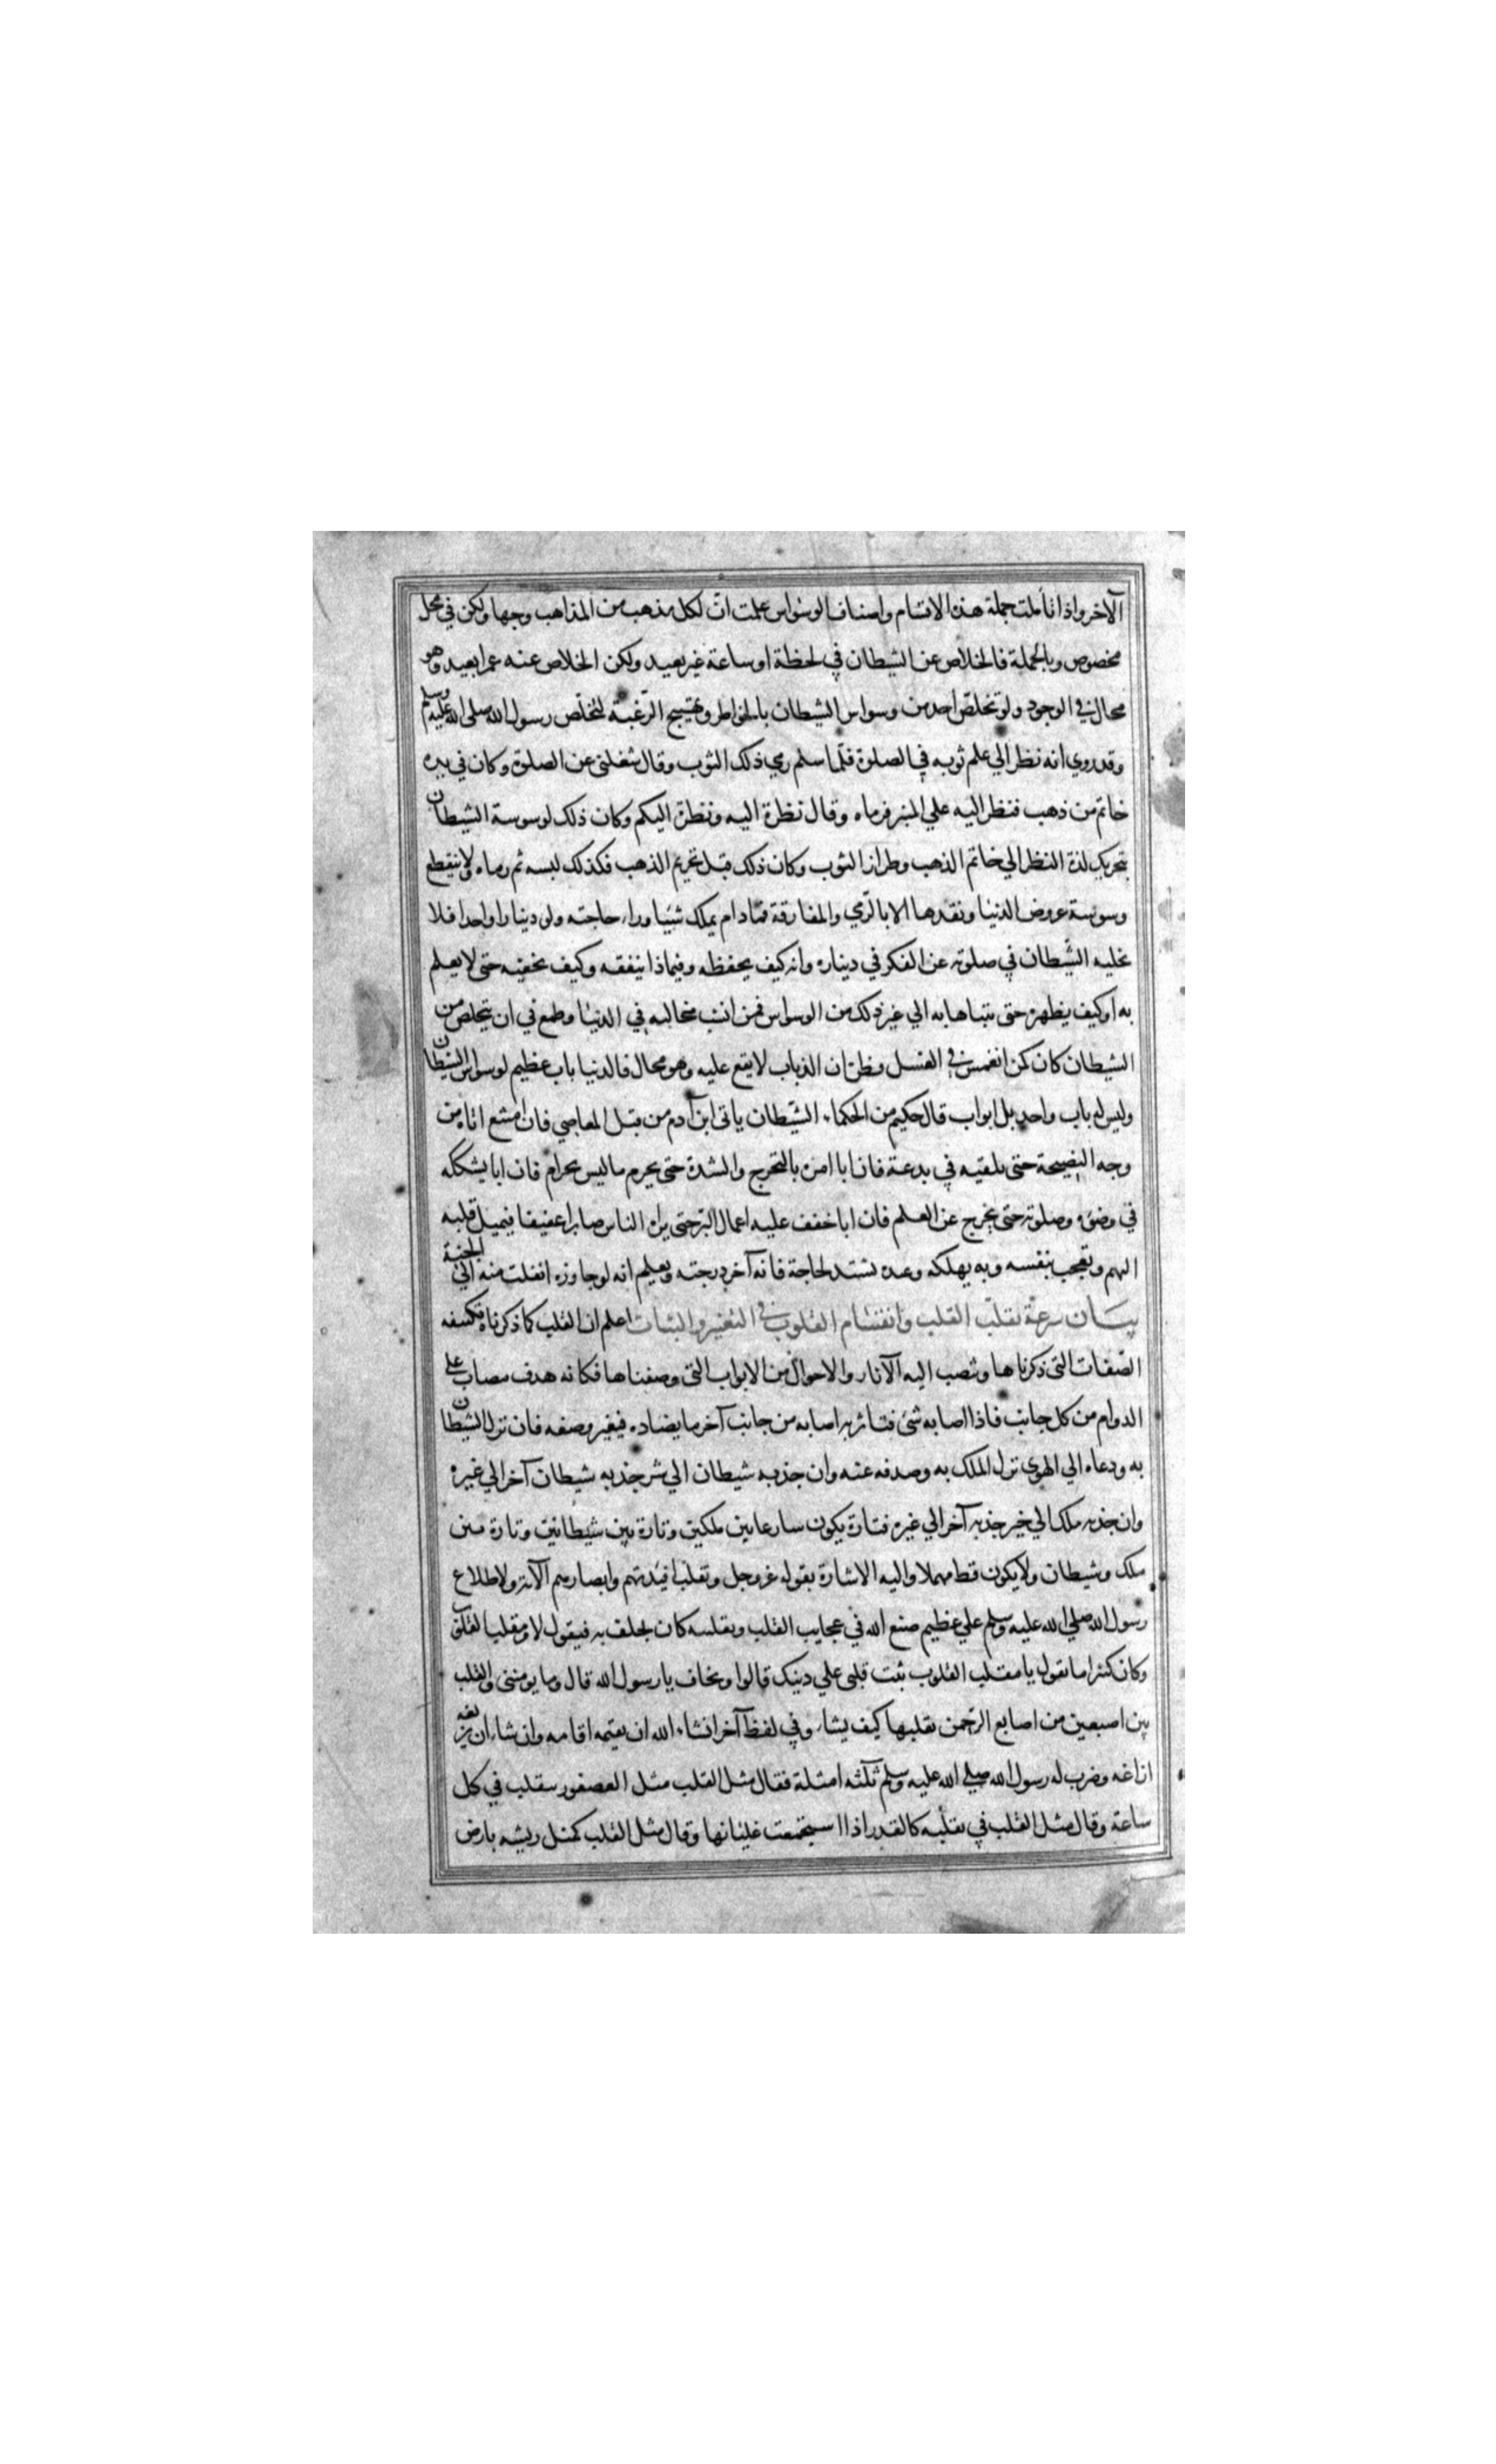 الآخر واذا تأملت جملة هذه الاقسام واصناف الوسواس علمت انّ لكل مذهب من المذاهب وجها ولكن في محل
مخصوص وبالجملة فالخلاص عن الشيطان في لحظة او ساعة غير بعيد ولكن الخلاص عنه عمرا بعيد وهو
محال في الوجود ولو تخلص احد من وسواس الشيطان بالخواطر وتهييج الرغبة لتخلص رسول الله صلى الله عليه وسلم
وقد روي انه نظر الي علم ثوبه في الصلوة فلما سلم رمي ذلك الثوب وقال شغلني عن الصلوة وكان في يده
خاتم من ذهب فنظر اليه علي المنبر فرماه وقال نظرة اليه ونظرة اليكم وكان ذلك لوسوسة الشيطان
بتحريك لذة النظر الي خاتم الذهب وطراز الثوب وكان ذلك قبل تحريم الذهب فكذلك لبسه ثم رماه ولا ينقطع
وسوسة عروض الدنيا ونقدها الا بالرمي والمفارقة فمادام يملك شيا وراء حاجته ولو دينارا واحدا فلا
يخليه الشيطان في صلوته عن الفكر في ديناره وانه كيف يحفظه وفيماذا ينفقه وكيف يخفيه حتى لا يعلم
به او كيف يظهره حتى يتباها به الي غير ذلك من الوسواس فمن انشب مخالبه في الدنيا وطمع في ان يتخلص من
الشيطان كان كمن انغمس في العسل وظن ان الذباب لا يقع عليه وهو محال فالدنيا باب عظيم لوسواس الشيطان
وليس له باب واحد بل ابواب قال حكيم من الحكماء الشيطان ياتى ابن آدم من قبل المعاصي فان امتنع اتاه من
وجه النصيحة حتى يلقيه في بدعة فان ابا امره بالتحرج والشدة حتى يحرم ما ليس بحرام فان ابا يشككه
في وضوءه وصلوته حتى يخرج عن العلم فان ابا خفف عليه اعمال البر حتى يراه الناس صابرا عفيفا فيميل قلبه
اليهم ويعجب بنفسه وبه يهلكه وعده تشتد لحاجة فانه آخر درجته ويعلم انه لو جاوزه انفلت منه الي الجنة
بيان سرعة تقلب القلب وانقسام القلوب في التغير والثبات اعلم ان القلب كما ذكرناه تكتنفه
الصفات التى ذكرناها وتصب اليه الآثار والاحوال من الابواب التى وصفناها فكانه هدف مصاب على
الدوام من كل جانب فاذا اصابه شئ فتاثر به اصابه من جانب آخر ما يضاده فيغير وصفه فان نزل الشيطان
به ودعاه الي الهوى نزل الملك به وصدفه عنه وان جذبه شيطان الي شر جذبه شيطان آخر الي غيره
وان جذبه ملك الي خير جذبه آخر الي غيره فتارة يكون سارعا بين ملكين وتارة بين شيطانين وتارة بين
ملك وشيطان ولا يكون قط مهملا واليه الاشارة بقوله عز وجل ونقلب افئدتهم وابصارهم الآية ولاطلاع
رسول الله صلي الله عليه وسلم علي عظيم صنع الله في عجايب القلب وتقلبه كان يحلف به فيقول لا ومقلب القلوب
وكان كثيرا ما يقول يا مقلب القلوب ثبت قلبى علي دينك قالوا وتخاف يا رسول الله قال وما يومننى والقلب
بين اصبعين من اصابع الرحمن يقلبها كيف يشاء وفي لفظ آخر ان شاء الله ان يقيمه اقامه وان شاء ان يزيغه
ازاغه وضرب له رسول الله صلي الله عليه وسلم ثلثه امثلة فقال مثل القلب مثل العصفور يتقلب في كل
ساعة وقال مثل القلب في تقلبه كالقدر اذا استجمعت غليانها وقال مثل القلب كمثل ريشه بارض